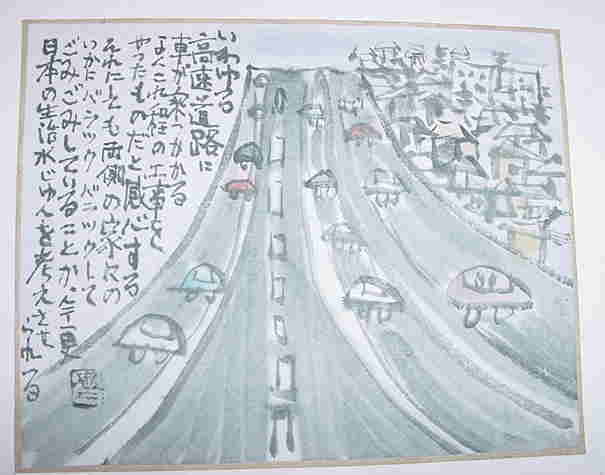 いわゆる
高速道路に
車が乗っかかる
よくこれ程の工事を
やったものだと感心する
それにしても両側の家々の
いかにバンツクバンツクして
ごみごみしていることか。今更
日本の生活水じゅんを考えさせ
られる